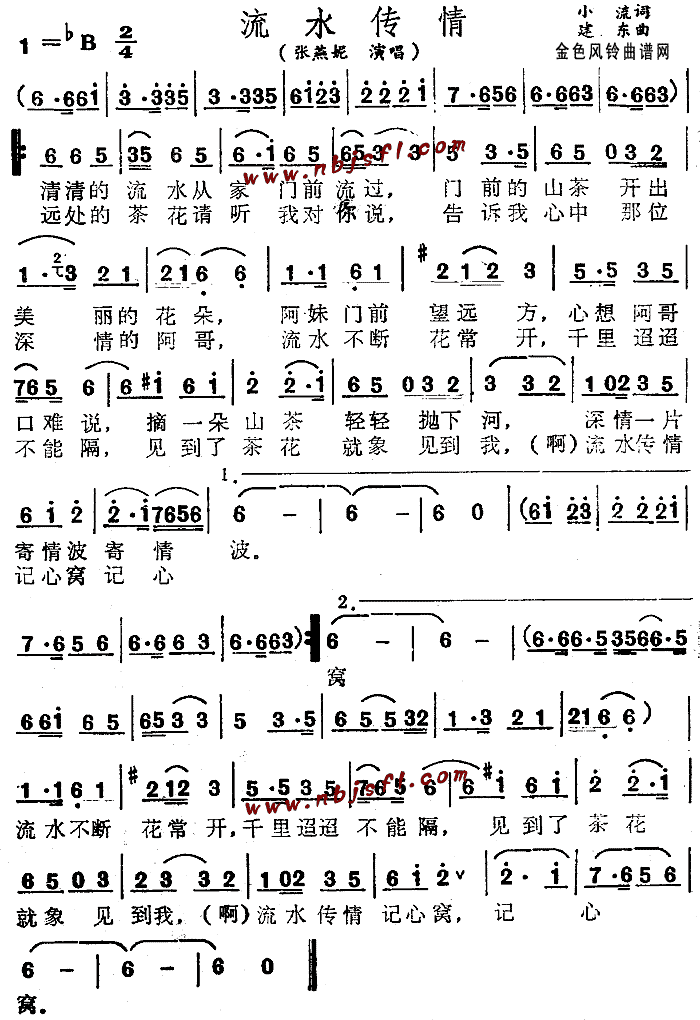 流水传情
小流词
1=♭B 2/4
(张燕妮 演唱)
建东曲
金色风铃曲谱网
(6·661̇ 3·335 3·335 61̇2̇3̇ 2̇2̇2̇1̇ 7·656 6·663 6·663)
665 35 65 6·1̇ 65 653 3 5 3·5 65 032
www.nbjsfl.com
清清的 流 水从 家 门前 流过, 门 前的 山茶 开出
远处的 茶 花请 听 我对 你说, 告 诉我 心中 那位
1·3 21 216 6 1·1 61 #212 3 5·5 35
美 丽的 花朵, 阿妹 门前 望远 方, 心想 阿哥
深 情的 阿哥, 流水 不断 花常 开, 千里 迢迢
765 6 6 #1̇ 6 1̇ 2̇ 2̇·1̇ 65 032 3 32 102 35
口难 说, 摘 一朵 山茶 轻轻 抛下 河, 深情一片
不能 隔, 见 到了 茶花 就象 见到 我,(啊)流水传情
1.
6 1̇ 2̇ 2̇·1̇ 7656 6 - 6 - 6 0 (61̇ 2̇3̇ 2̇ 2̇2̇1̇
寄情波 寄 情 波。
记心窝 记 心
2.
7·656 6·663 6·663) 6 - 6 - (6·66·5 3566·5
窝
661̇ 65 653 3 5 3·5 65 532 1·3 21 216 6)
1·1 61 #212 3 5·5 35 765 6 6 #1̇ 6 1̇ 2̇ 2̇·1̇
www.nbjsfl.com
流水不断 花常 开,千里迢迢 不能隔, 见 到了 茶花
65 03 23 32 102 35 6 1̇ 2̇ˇ 2̇· 1̇ 7·656
就象 见 到我,(啊)流水传情 记心窝, 记 心
6 - 6 - 6 0
窝。